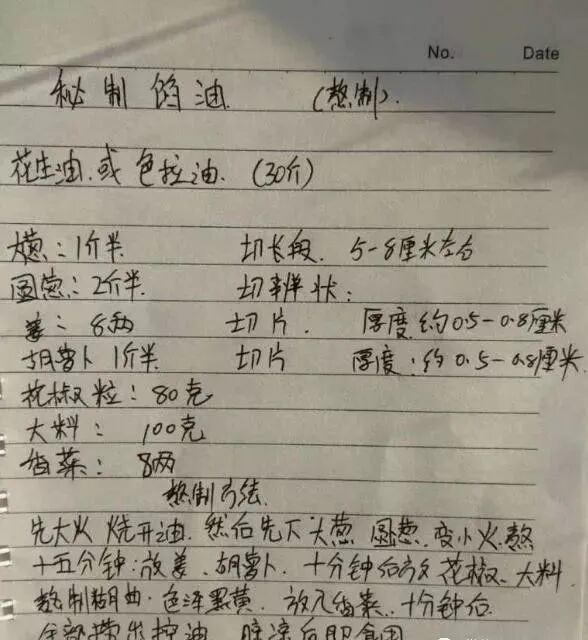 No. Date
秘制馅油 (熬制).
花生油.或色拉油. (30斤)
大葱:1斤半. 切长段. 5-8厘米左右
圆葱:2斤半. 切辨状:
姜: 8两 切片. 厚度约0.5-0.8厘米
胡萝卜1斤半. 切片 厚度:约0.5-0.8厘米.
花椒粒:80克
大料: 100克
香菜: 8两
熬制方法.
先大火烧开油.然后先下大葱.圆葱.变小火.熬
十五分钟.放姜.胡萝卜.十分钟后放花椒.大料
熬制 色泽黑黄.放入香菜.十分钟后.
全部捞出控油.晾凉后即食用